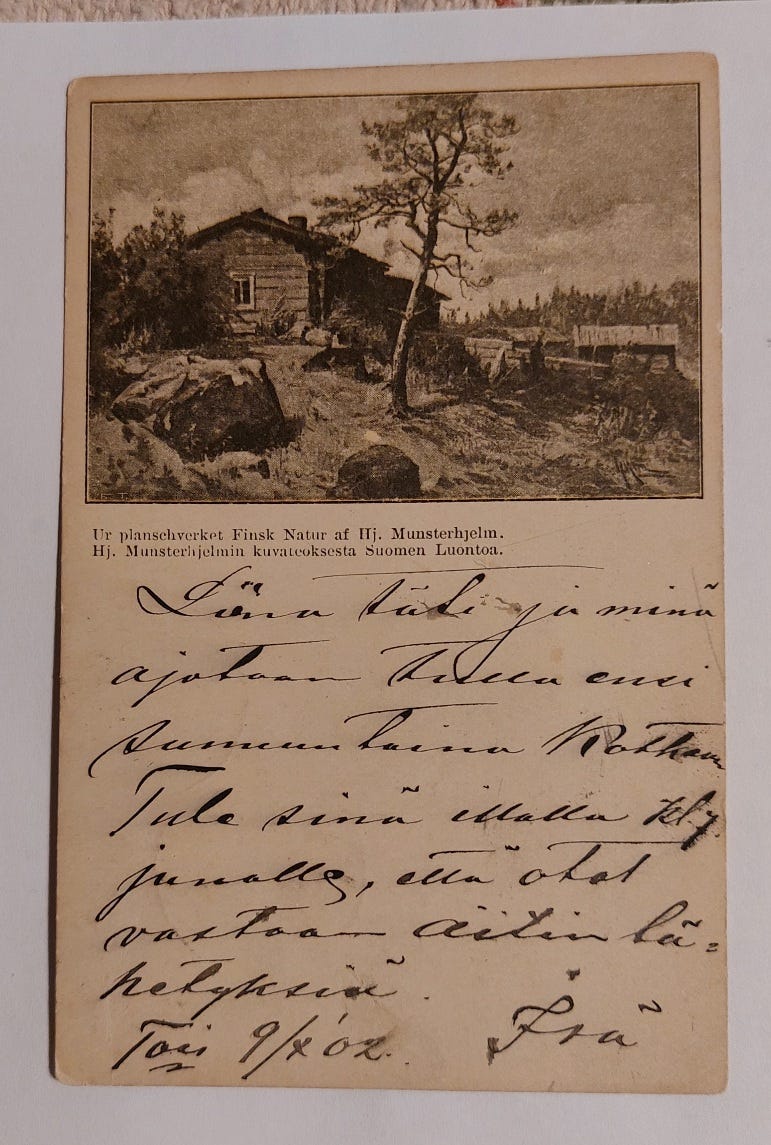 Ur planschverket Finsk Natur af Hj. Munsterhjelm.
Hj. Munsterhjelmin kuvateoksesta Suomen Luontoa.
täti ja minä
ajotaan tulla ensi
sunnuntaina Kotkaan
Tule sinä illalla kl. 7.
junalle, että otat
vastaan äitin lä=
hetyksiä.
9/X 02.